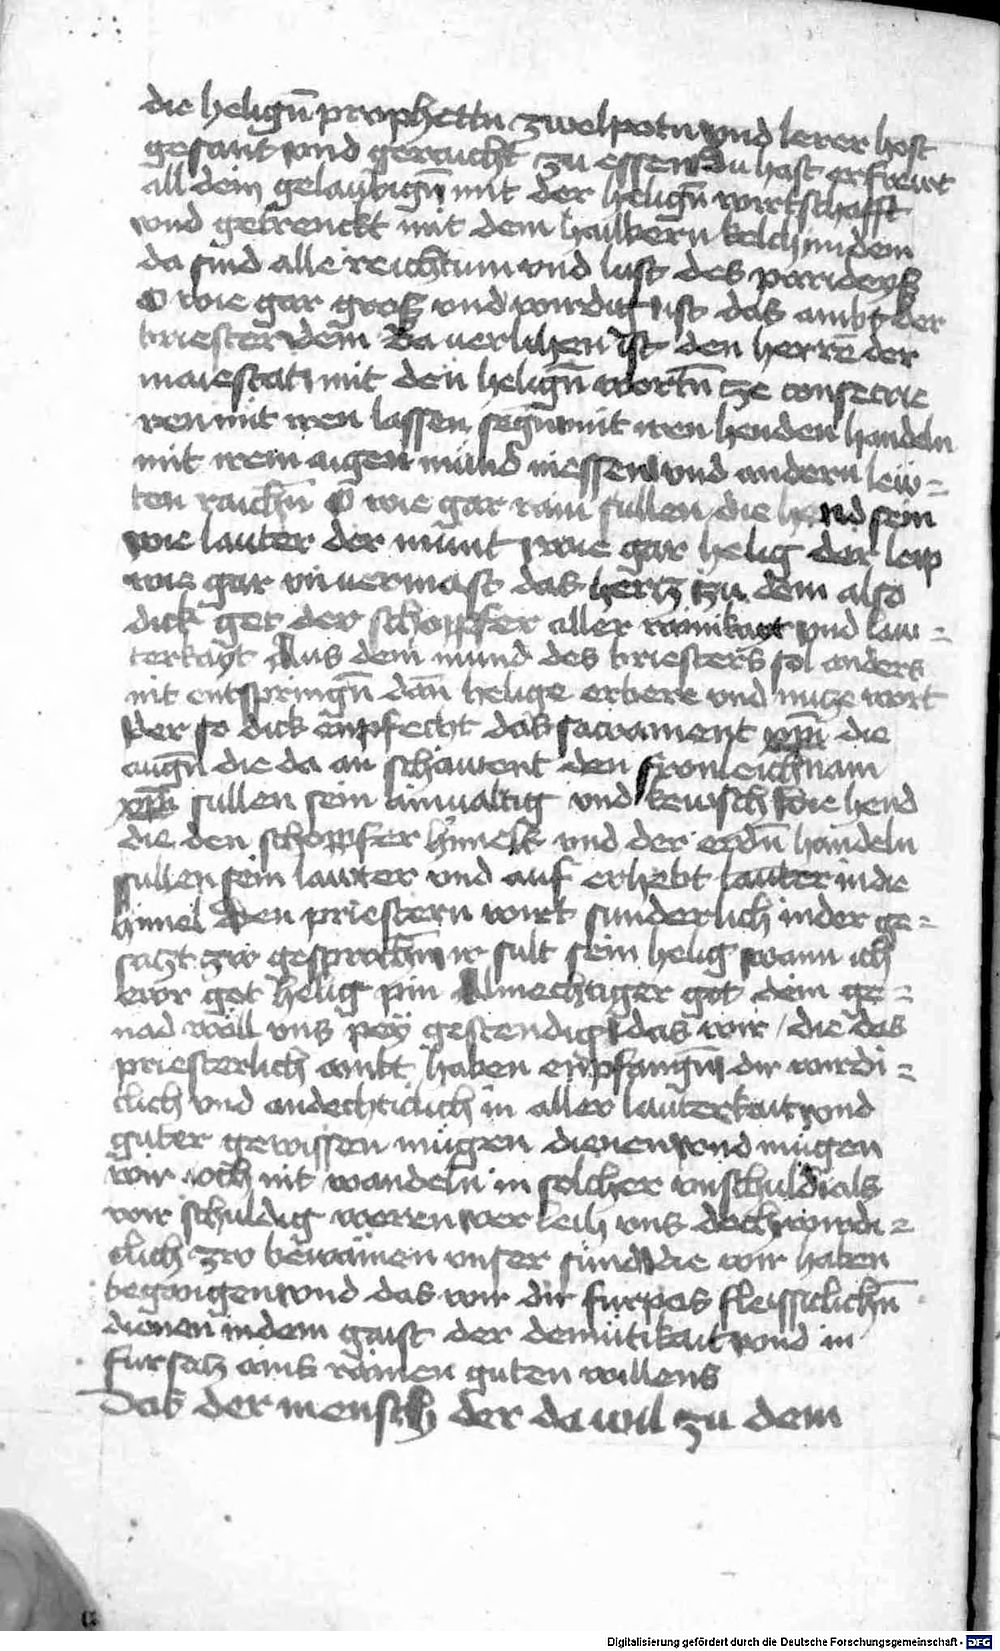 die heligñ prophettn zwelpotn vnd lerer host
gesant vnd geraicht zu essen Du hast erfrewt
all dein gelaubigñ mit der heligñ wirtschafft
vnd getrenckt mit dem hailbern kelch in dem
da sind alle reichtum vnd lust des parideyß
O wie gar groß vnd wirdig ist das ambt der
briester den da verlihen ist den herrē der
maiestat mit den heligñ wortñ ze consecrie
ren mit iren lefssen segñ mit iren henden handeln
mit irem aigen mund niessen vnd andern lew=
ten raichñ O wie gar rain sullen die hend sein
wie lauter der munt wie gar helig der leip
wie gar vnuermast das hertz zu dem also
dick get der schopffer aller rainikayt vnd lau=
terkayt Aus dem mund des briesters sol anders
nit entspringñ dañ helige erbere vnd nucze wort
der so dick enpfecht das sacrament xp̄i die
augñ die da an schawent den fronleichnam
xp̄i sullen sein ainualtig vnd kewsch die hend
die den schopffer himels vnd der erdñ handeln
sullen sein lauter vnd auf erhebt lauter in die
himel Den priestern wirt sunderlich in der ge=
saczt zw gesprochñ ir sult sein helig wann ich
ewr got helig pin Almechtiger got dein ge=
nad well vns pey gestendig das wir die das
priesterlich ambt haben enpfangñ dir wirdi=
clich vnd andechticlich in aller lauterkait vnd
guter gewissen mügen dienen vnd mügen
wir ioch nit wandeln in solcher vnschuld als
wir schuldig weren wer leih vns doch wirdi=
clich zw bewainen vnser sünd die wir haben
begangen vnd das wir dir furpas fleissiclichñ
dienen in dem gaist der demütikait vnd in
fursatz ains rainen guten willens
Das der mensch der da wil zu dem
Digitalisierung gefördert durch die Deutsche Forschungsgemeinschaft - DFG